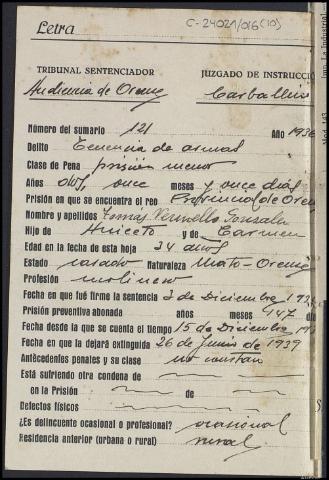 C-24021/016(10)
Letra
TRIBUNAL SENTENCIADOR
JUZGADO DE INSTRUCCIÓ
Audiencia de Orense
Carballino
Número del sumario 121 Año 1936
Delito Tenencia de armas
Clase de Pena prisión menor
Años dos, once meses y once días
Prisión en que se encuentra el reo Provincial de Oren
Nombre y apellidos Tomás González
Hijo de Aniceto y de Carmen
Edad en la fecha de esta hoja 34 años
Estado casado Naturaleza Orense
Profesión molinero
Fecha en que fué firme la sentencia 3 de Diciembre
Prisión preventiva abonada años meses 447 di
Fecha desde la que se cuenta el tiempo 15 de Diciembre
Fecha en que la dejará extinguida 26 de Junio de 1939
Antecedentes penales y su clase no constan
Está sufriendo otra condena de —
en la Prisión — de —
Defectos físicos —
¿Es delincuente ocasional o profesional? ocasional
Residencia anterior (urbana o rural) rural